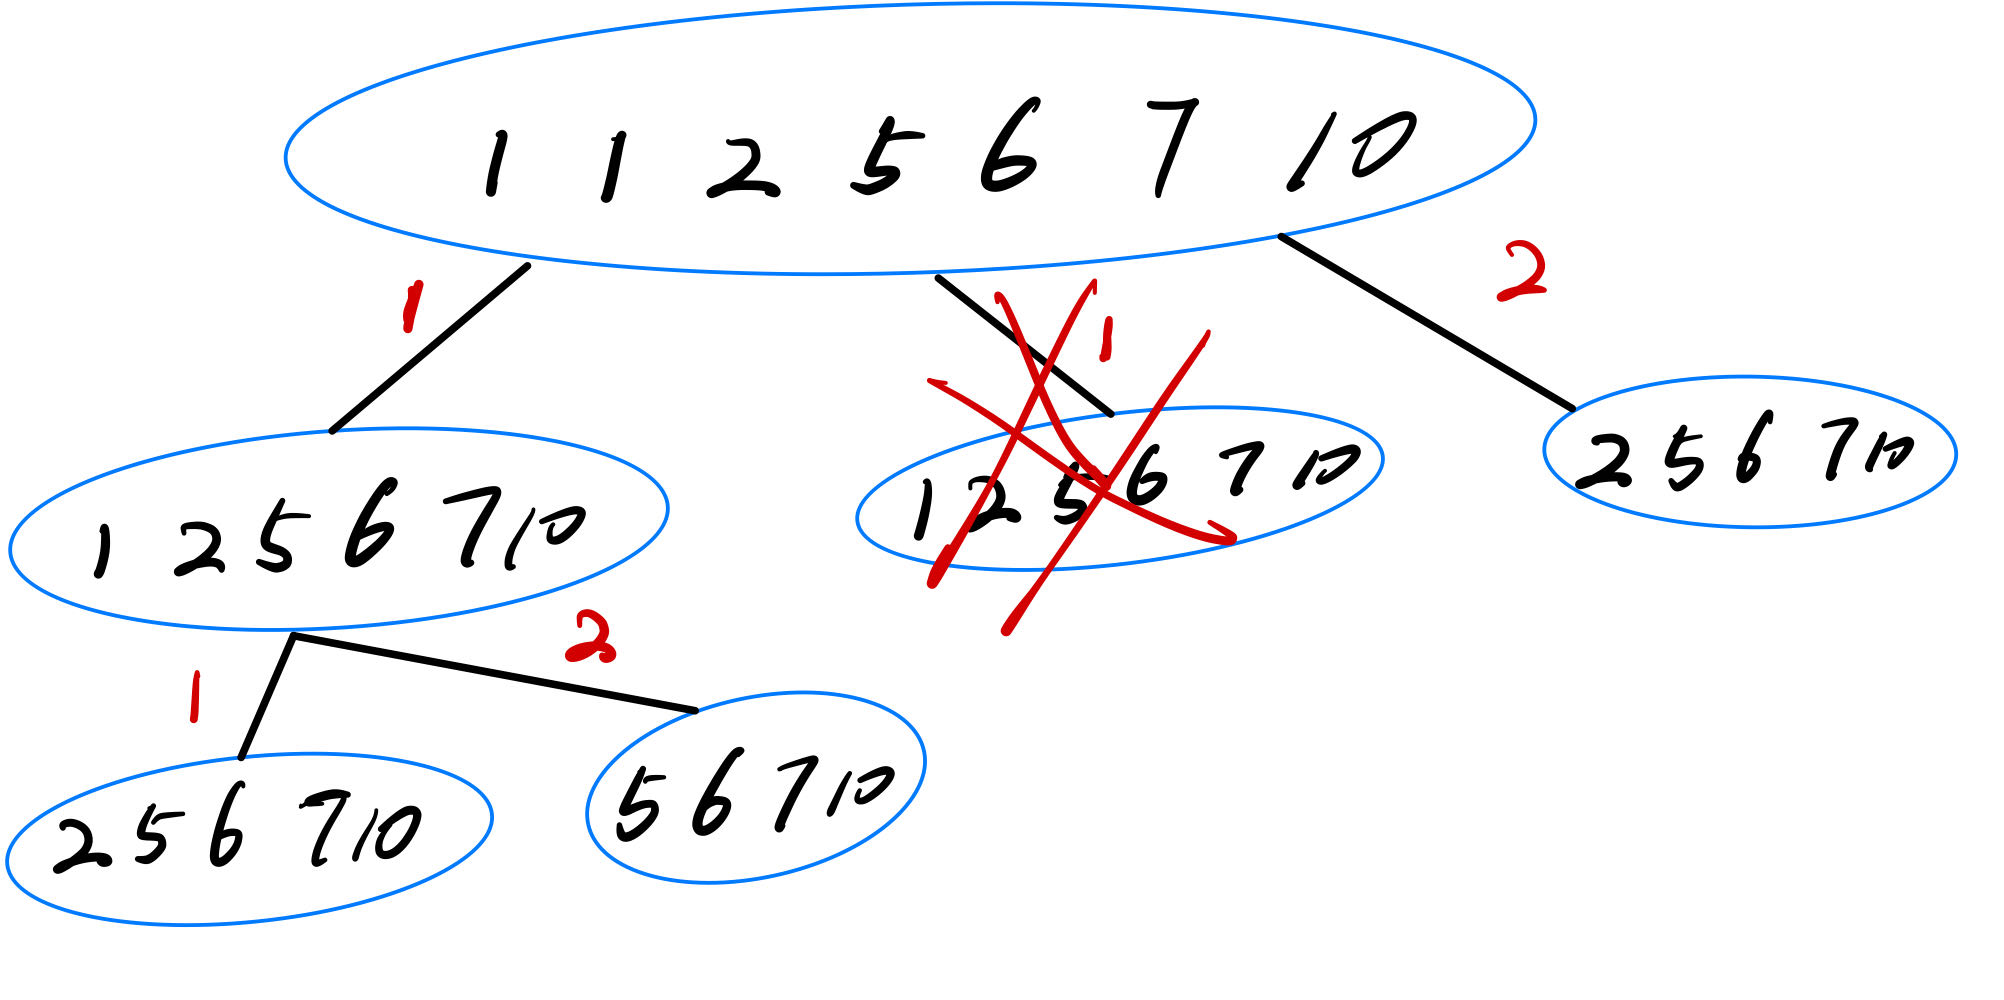 1 1 2 5 6 7 10
1 1 2
1 2 5 6 7 10
1 2 5 6 7 10
2 5 6 7 10
1 2
2 5 6 7 10
5 6 7 10